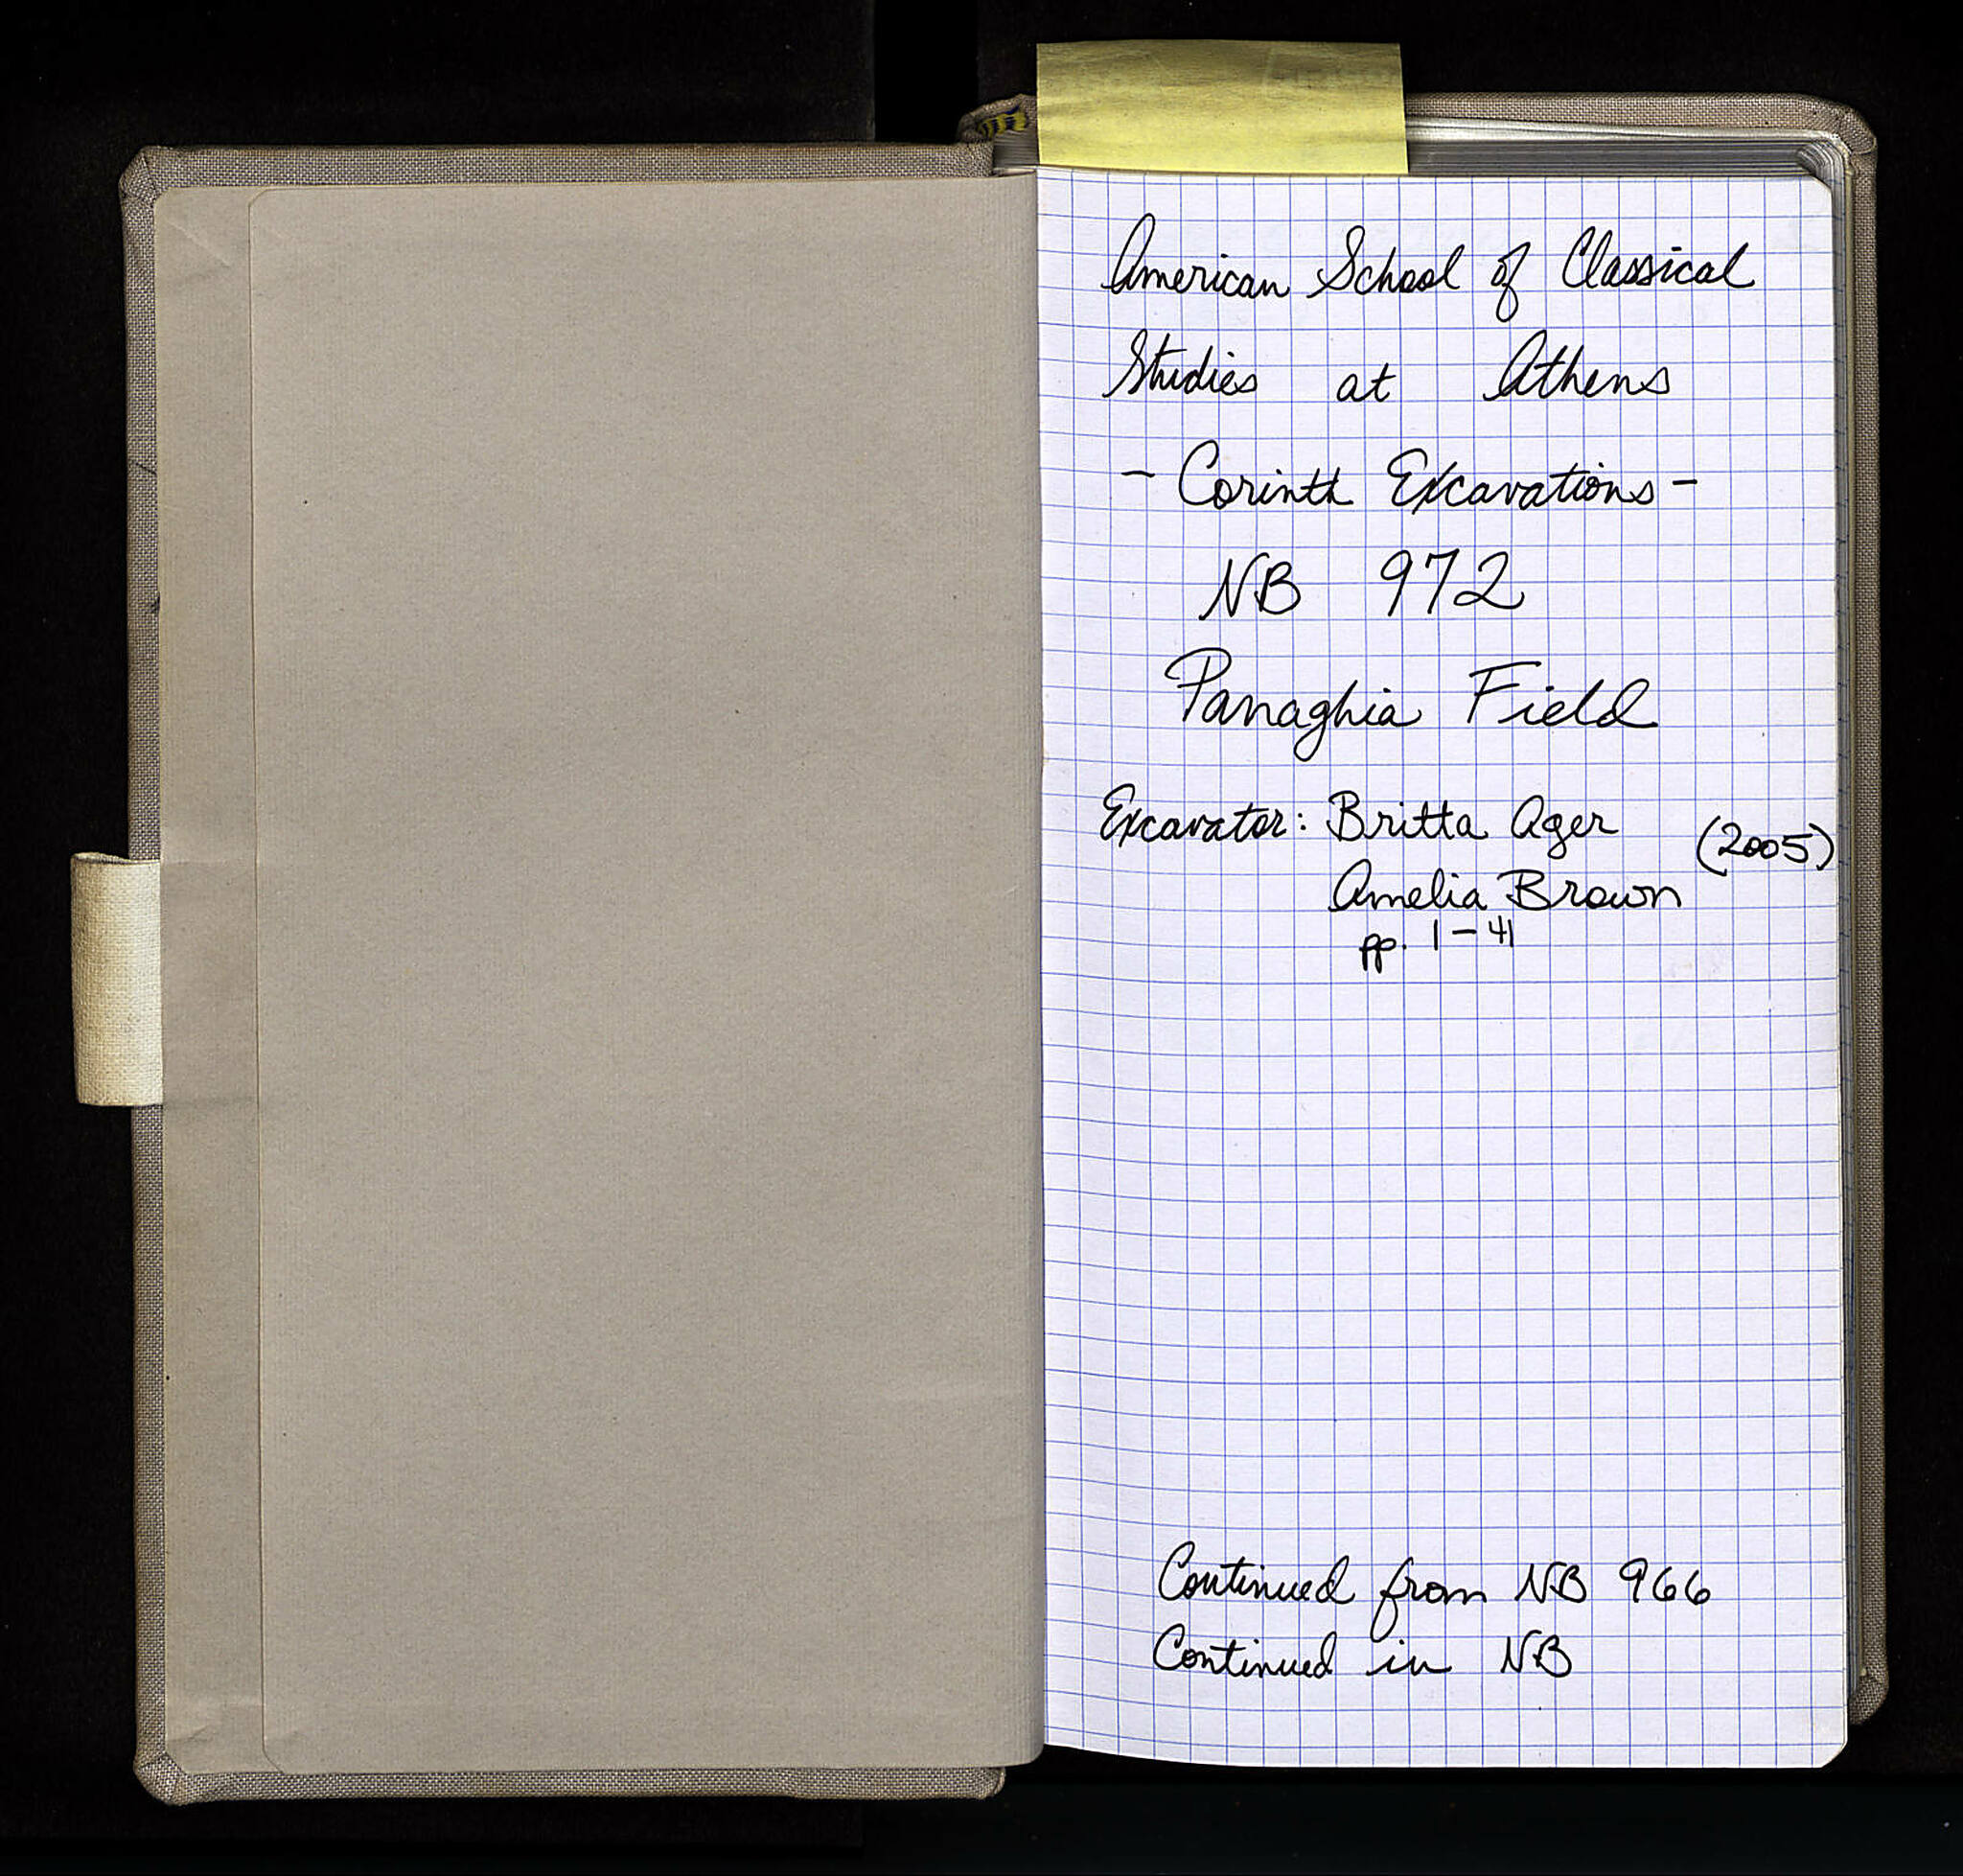 American School of Classical
Studies at Athens
- Corinth Excavations -
NB 972
Panaghia Field
Excavator: Britta Ager (2005)
Amelia Brown
pp. 1-41
Continued from NB 966
Continued in NB